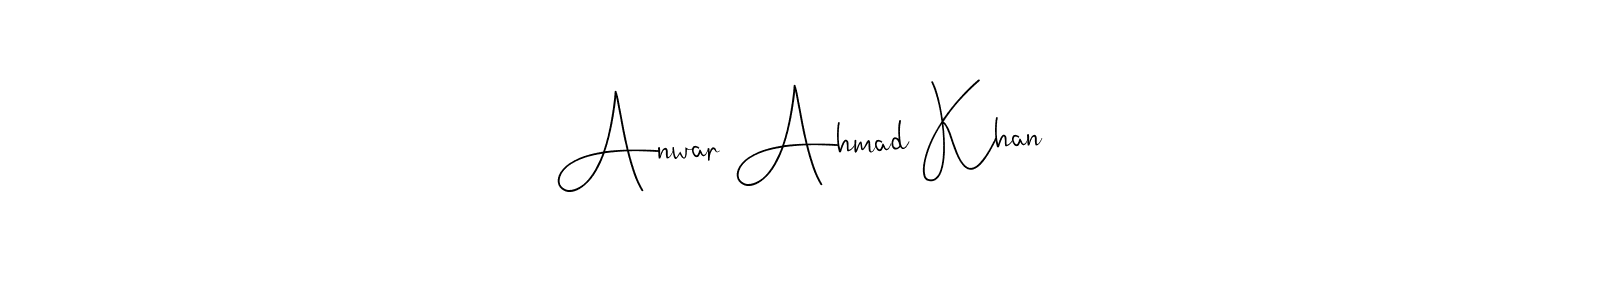 Anwar Ahmad Khan